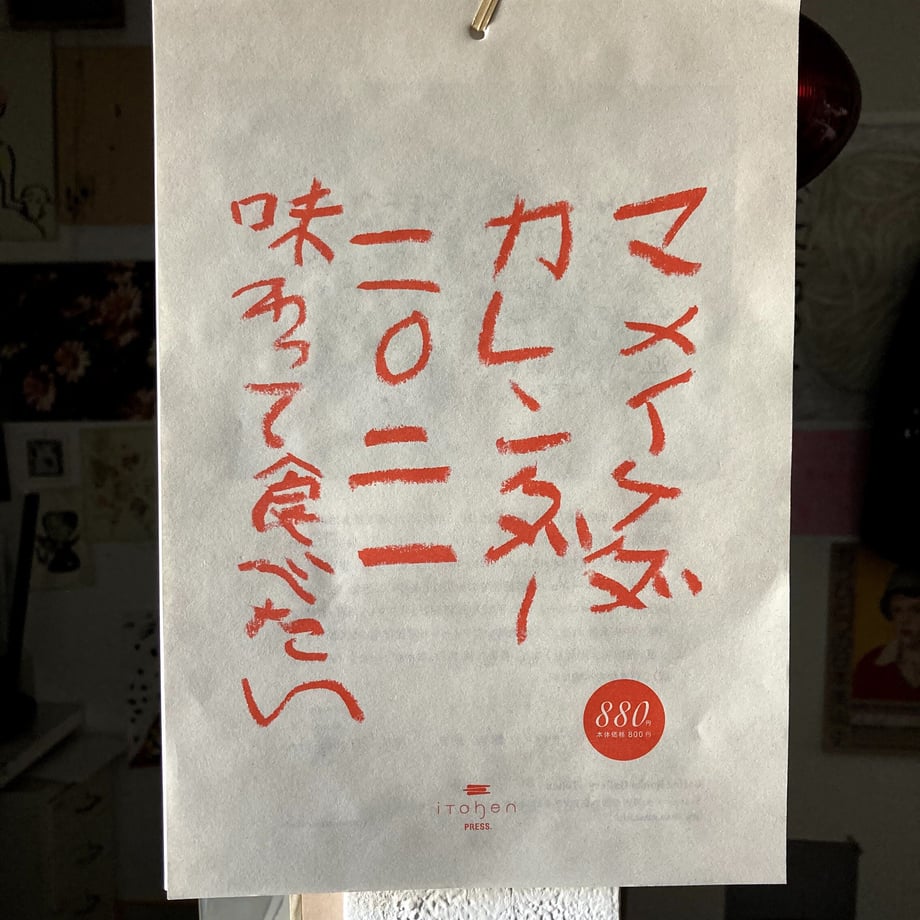 マメイケダ
カレンダー
二〇二一
味わって食べたい
880円
本体価格 800円
iTohen
PRESS.